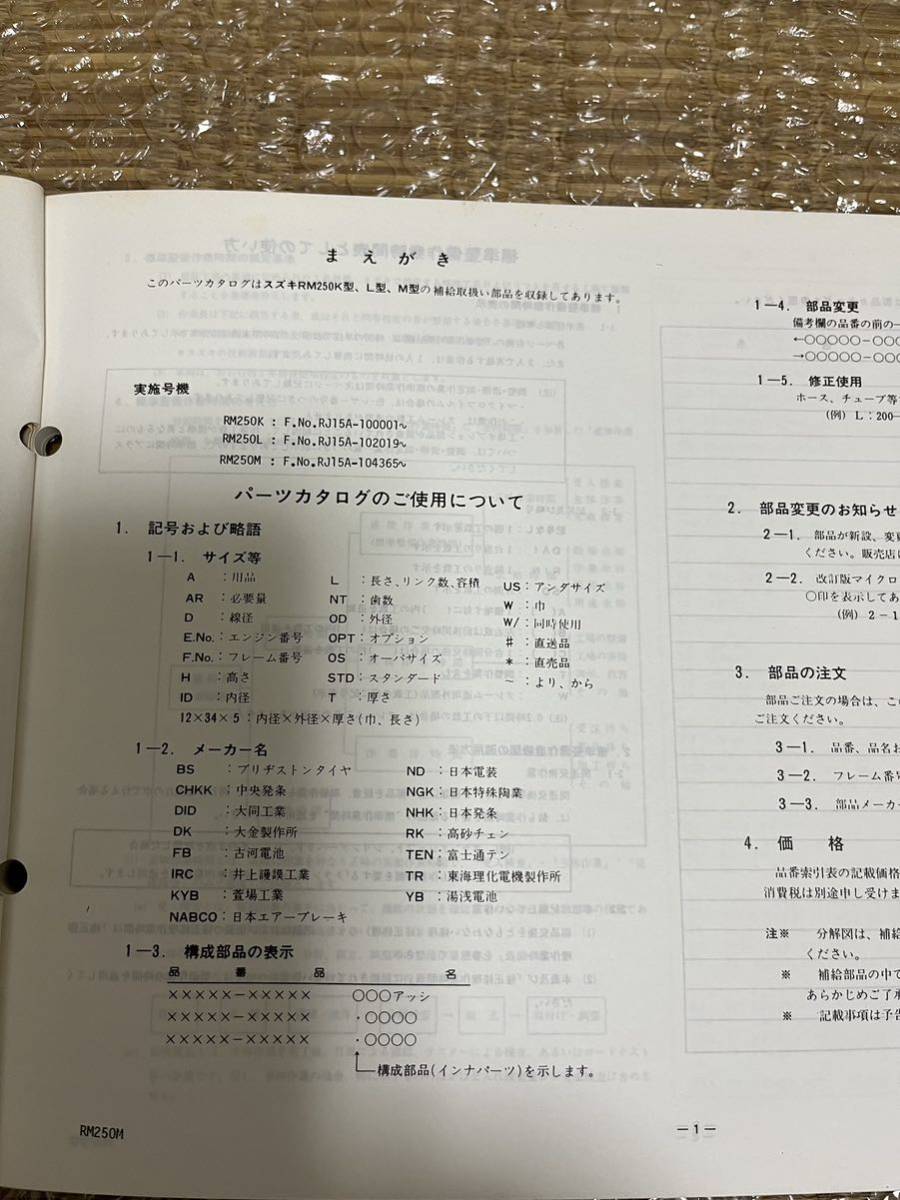 まえがき
このパーツカタログはスズキRM250K型、L型、M型の補給取扱い部品を収録してあります。
実施号機
RM250K : F.No.RJ15A-100001~
RM250L : F.No.RJ15A-102019~
RM250M : F.No.RJ15A-104365~
パーツカタログのご使用について
1. 記号および略語
1-1. サイズ等
A :用品
AR :必要量
D :線径
E.No.:エンジン番号
F.No.:フレーム番号
H :高さ
ID :内径
L :長さ、リンク数、容積
NT :歯数
OD :外径
OPT:オプション
OS :オーバサイズ
STD:スタンダード
T :厚さ
US:アンダサイズ
W :巾
W/:同時使用
# :直送品
* :直売品
~ :より、から
12×34×5:内径×外径×厚さ(巾、長さ)
1-2. メーカー名
BS :ブリヂストンタイヤ
CHKK :中央発条
DID :大同工業
DK :大金製作所
FB :古河電池
IRC :井上護謨工業
KYB :萱場工業
NABCO:日本エアーブレーキ
ND :日本電装
NGK:日本特殊陶業
NHK:日本発条
RK :高砂チェン
TEN:富士通テン
TR :東海理化電機製作所
YB :湯浅電池
1-3. 構成部品の表示
品 番 品 名
×××××-××××× ○○○アッシ
×××××-××××× ・○○○○
×××××-××××× ・○○○○
構成部品(インナパーツ)を示します。
RM250M
-1-
1-4. 部品変更
備考欄の品番の前の
←○○○○○-○○○
→○○○○○-○○○
1-5. 修正使用
ホース、チューブ等
(例) L:200-
2. 部品変更のお知らせ
2-1. 部品が新設、変更
ください。販売店
2-2. 改訂版マイクロ
○印を表示してあ
(例) 2-1
3. 部品の注文
部品ご注文の場合は、この
ご注文ください。
3-1. 品番、品名お
3-2. フレーム番号
3-3. 部品メーカー
4. 価格
品番索引表の記載価格
消費税は別途申し受けま
注※ 分解図は、補給
ください。
※ 補給部品の中で
あらかじめご了承
※ 記載事項は予告